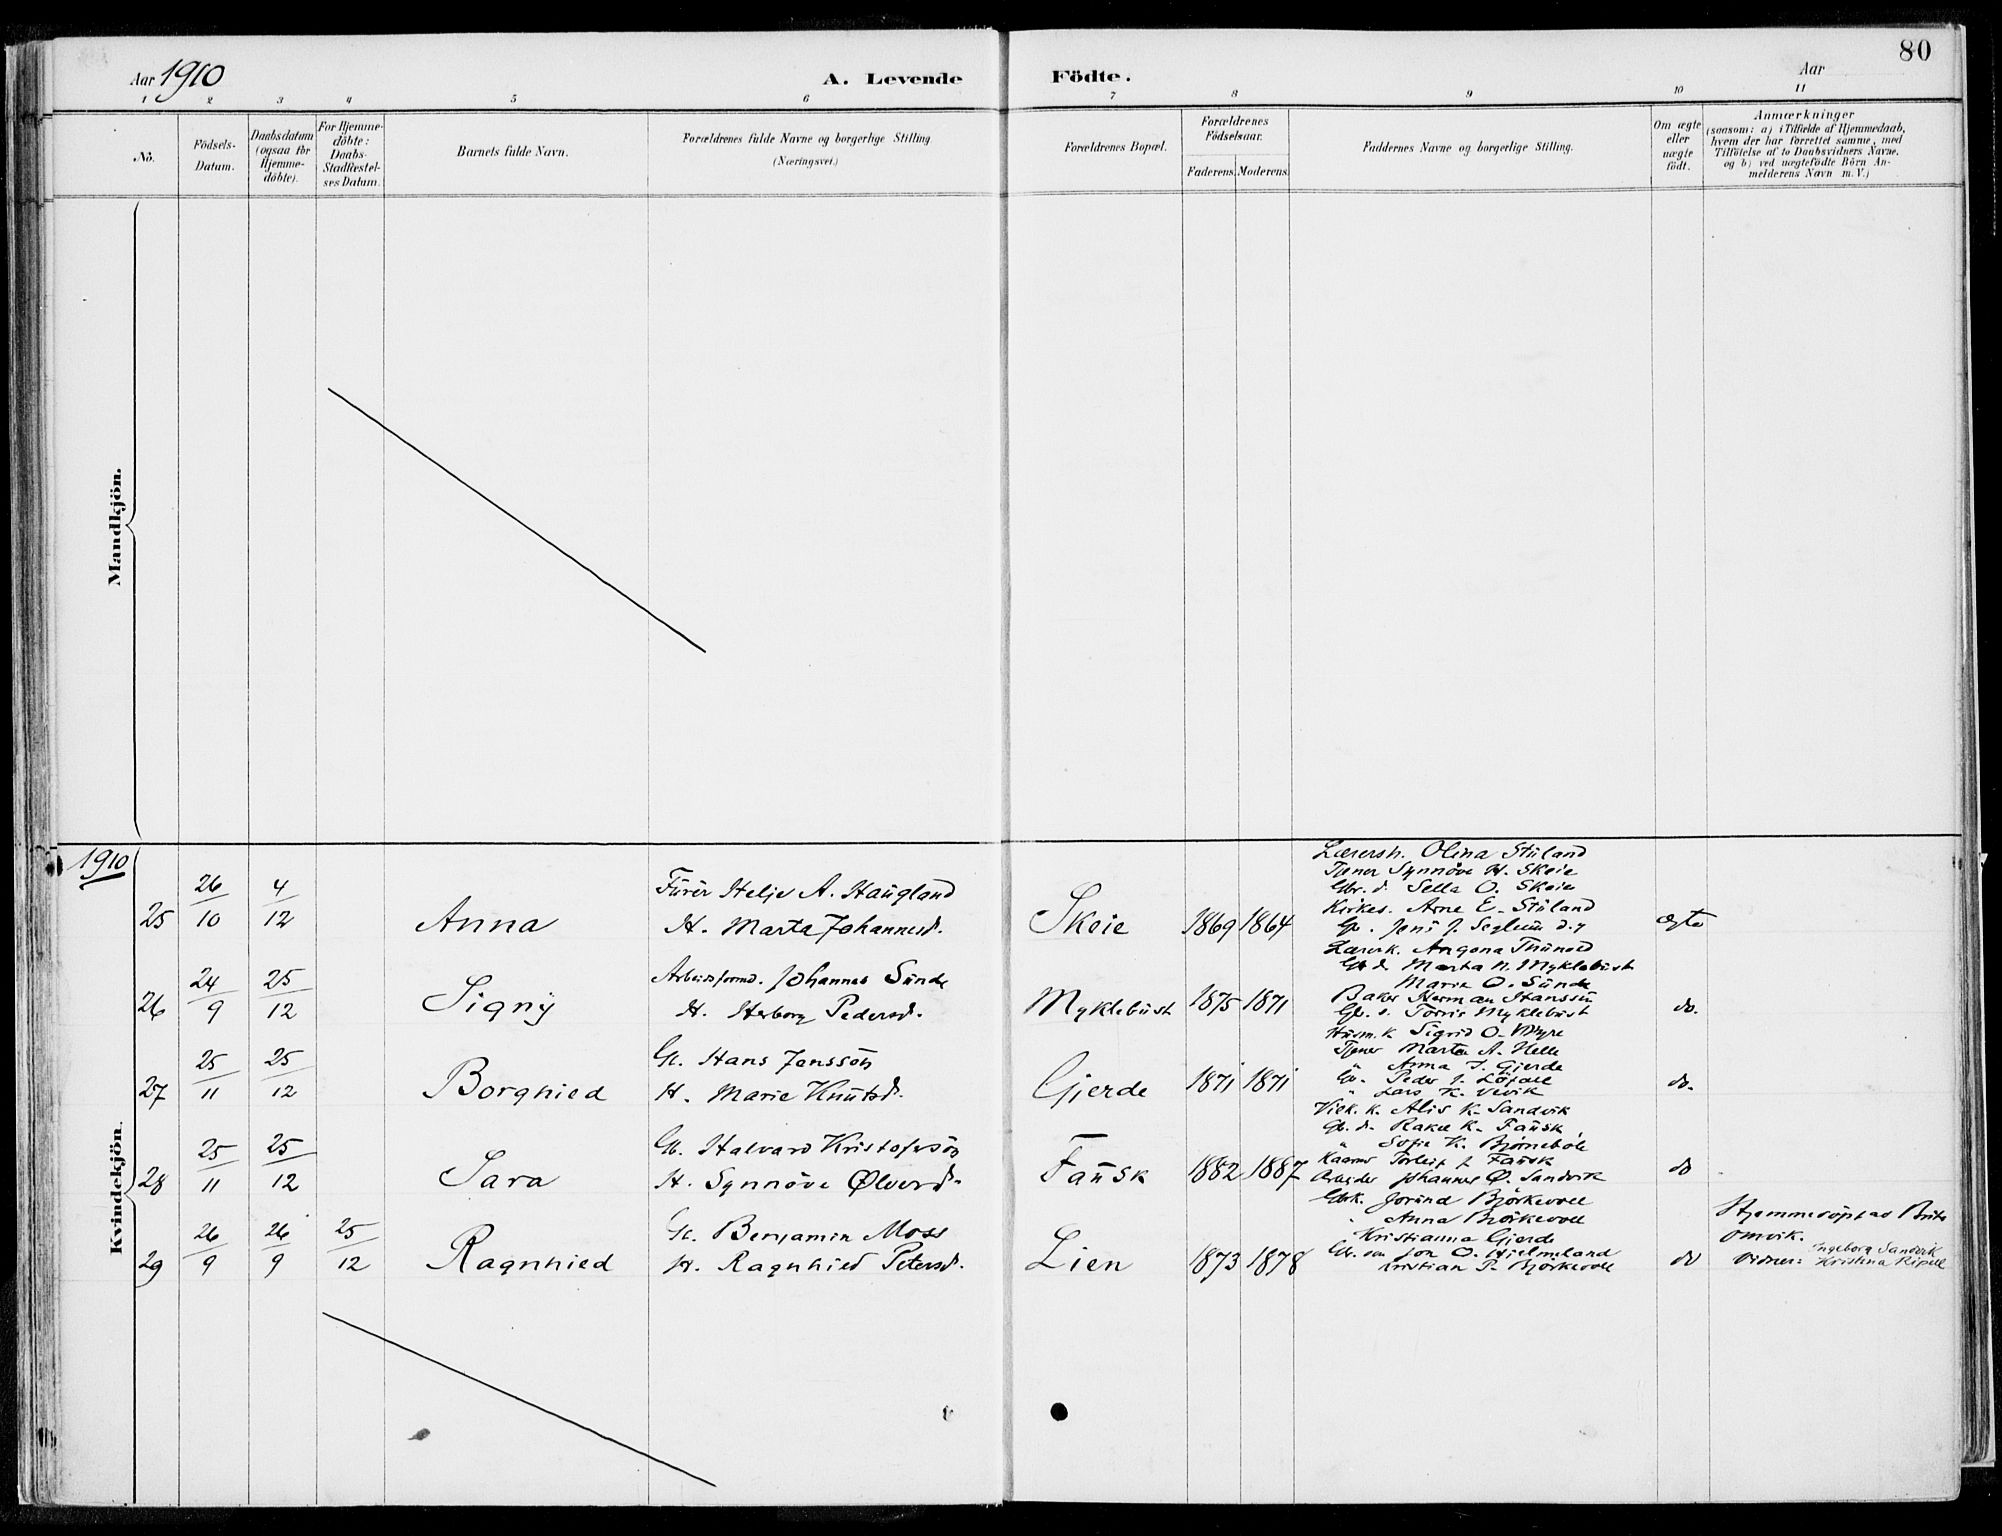 80
Aar 1910
A. Levende
Födte.
Aar
1 2 3 4 5 6 7 8 9 10 11
No.
Födsels-
Datum.
Daabsdatum
(ogsaa for
Hjemme-
döbte).
For Hjemme-
döbte:
Daabs-
Stadfæstel-
ses Datum.
Barnets fulde Navn.
Forældrenes fulde Navne og borgerlige Stilling
(Næringsvei.)
Forældrenes Bopæl.
Forældrenes
Födselsaar.
Faderens. Moderens.
Faddernes Navne og borgerlige Stilling.
Om ægte
eller
uægte
födt.
Anmærkninger
(saasom: a) i Tilfælde af Hjemmedaab,
hvem der har forrettet samme, med
Tilföielse af to Daabsvidners Navne,
og b) ved uægtefödte Börn An-
melderens Navn m. V.)
Mandkjön.
Kvindekjön.
1910
25
26/10
4/12
Anna
Helje A. Haugland
H. Marta Johannesd.
Skeie
1869 1864
Olina Stuland
Tjener Synnöve H. Skeie
Gbr. d. Sella O. Skeie
Kirkes. Arne E. Stuland
ægte
26
24/9
25/12
Signy
Arbeidsformd. Johannes Sunde
H. Herborg Pedersd.
Myklebust
1875 1871
Gb d. Marta N. Myklebust
Marie O. Sunde
Baker Herman Hanssen
Gb. s. Torris Myklebust
do.
27
25/11
25/12
Borghild
G. Hans Jansson
H. Marie Knutsd.
Gjerde
1871 1871
Husm. k. Sigrid O. Myre
Tjener Marta A. Helle
" Anna J. Gjerde
" Lars K. Vevik
do.
28
25/11
25/12
Sara
Gb. Halvard Kristoferson
H. Synnöve Ølversd.
Fausk
1882 1887
Alis K. Sandvik
Gb. d. Rakel K. Fausk
" Sofie K. Björneböle
Torleif J. Fausk
Arbeider Johannes Ø. Sandvik
do
29
26/9
26/9
25/12
Ragnhild
G. Benjamin Moss
H. Ragnhild Petersd.
Lien
1873 1878
Gbrk. Jorund Björkevoll
" Anna Björkevoll
Kristianna Gjerde
Jon O. Hjelmeland
Kristian P. Björkevoll
do
Hjemmedöpt av Brita
Omvik.
Vidner: Ingeborg Sandvik
Kristina Ripell